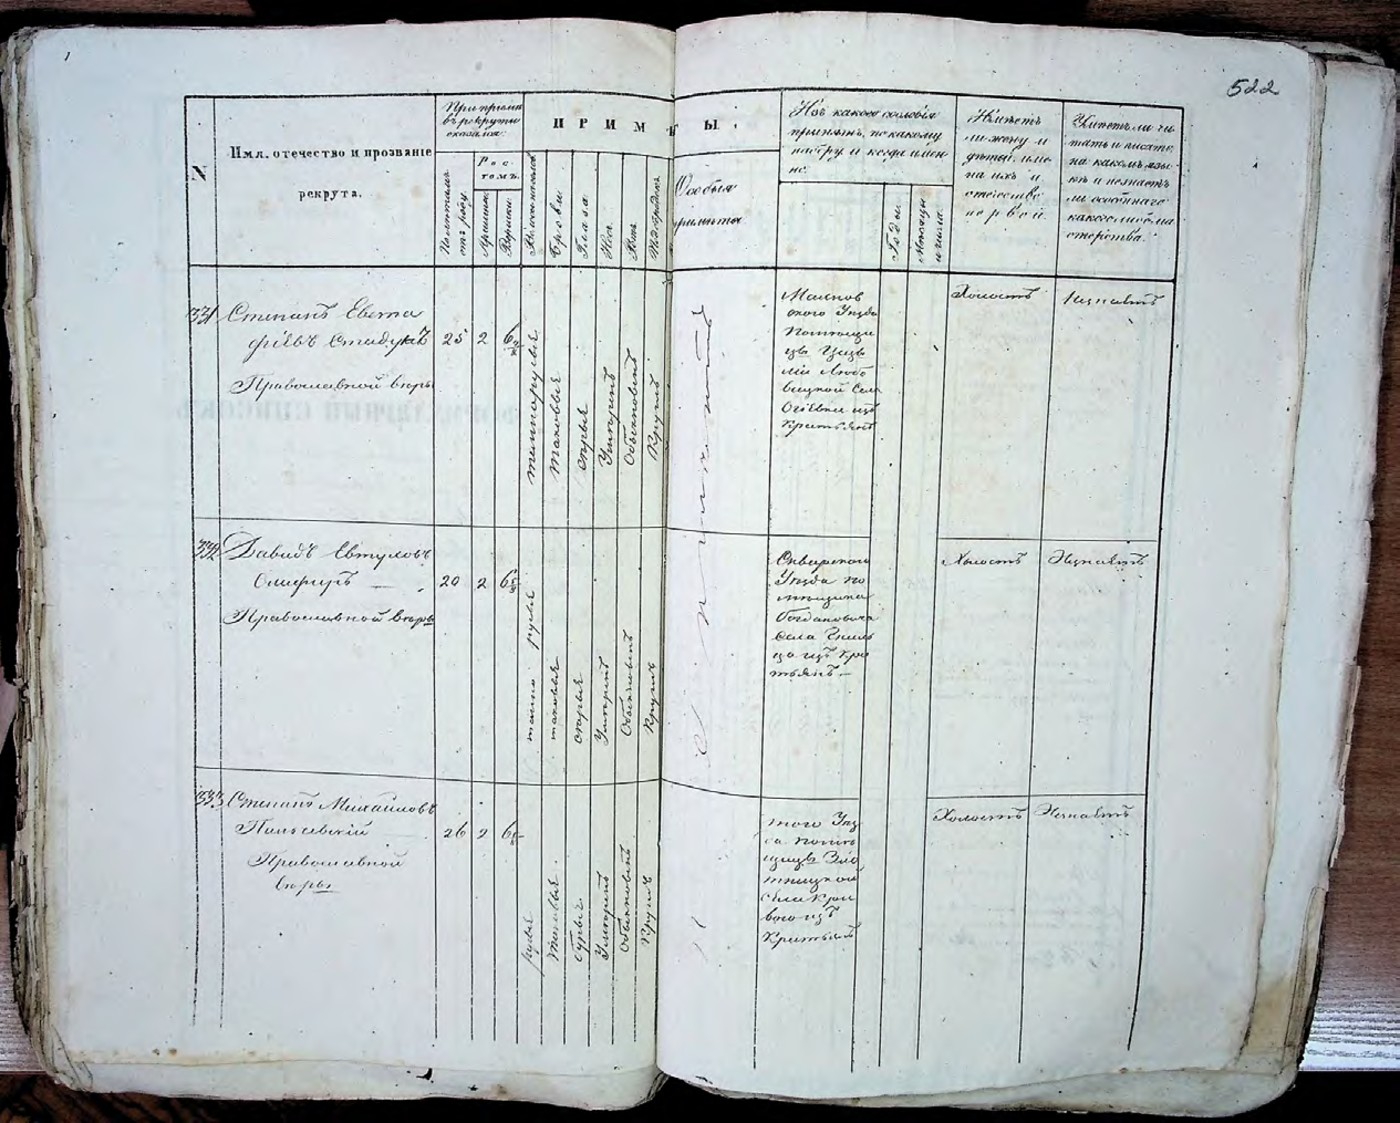 522
№
Имя, отечество и прозвание
рекрута.
При приемѣ
въ рекруты
оказался:
Полѣтамъ
отъ роду
Рос-
томъ.
Аршины
Вершки
ПРИМѢТЫ.
Волосы на головѣ
Брови
Глаза
Носъ
Ротъ
Подбородокъ
Особыя
примѣты
Изъ какого сословія
принятъ, по какому
набору и когда имен-
но.
Годы.
Мѣсяцы
и числа.
Имѣетъ
ли жену и
дѣтей, име-
на ихъ и
отечество
первой
Умѣетъ ли чи-
тать и писать,
на какомъ язы-
кѣ и незнаетъ
ли особеннаго
какого либо ма-
стерства.
331
Степанъ Евста
фіевъ
Православной вѣры
25
2
6
темнорусые
таковые
сѣрые
Умѣренъ
Обыкновенъ
Круглъ
ского Уѣзда
Помѣщи
цы
Села
изъ
Крестьянъ
Холостъ
Незнаетъ
332
Давидъ Евтуховъ
Олиферъ
Православной вѣры
20
2
6
темно русые
таковые
сѣрые
Умѣренъ
Обыкновенъ
Круглъ
Сквирского
Уѣзда По
мѣщика
Богдановича
Села Гниль
ца изъ Кре
тьянъ
Холостъ
Незнаетъ
333
Степанъ Михайловъ
Православной
вѣры
26
2
6
русые
таковые
бурые
Умѣренъ
Обыкновенъ
Круглъ
того Уѣз
да Помѣ
щицы
Села Кри
вого изъ
Крестьянъ
Холостъ
Незнаетъ